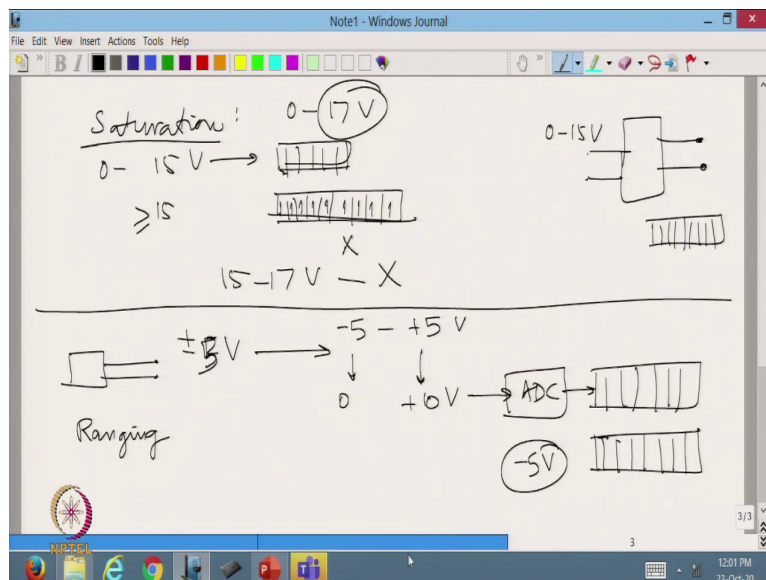 Note1 - Windows Journal
File Edit View Insert Actions Tools Help
B I
Saturation:
0 - 17 V
0 - 15 V
≥ 15
1 1 1 1 1 1 1 1 1 1
X
15-17 V - X
0-15V
± 5 V
-5 - +5 V
0 +10 V
ADC
Ranging
-5V
NPTEL
3/3
3
12:01 PM
23-Oct-20